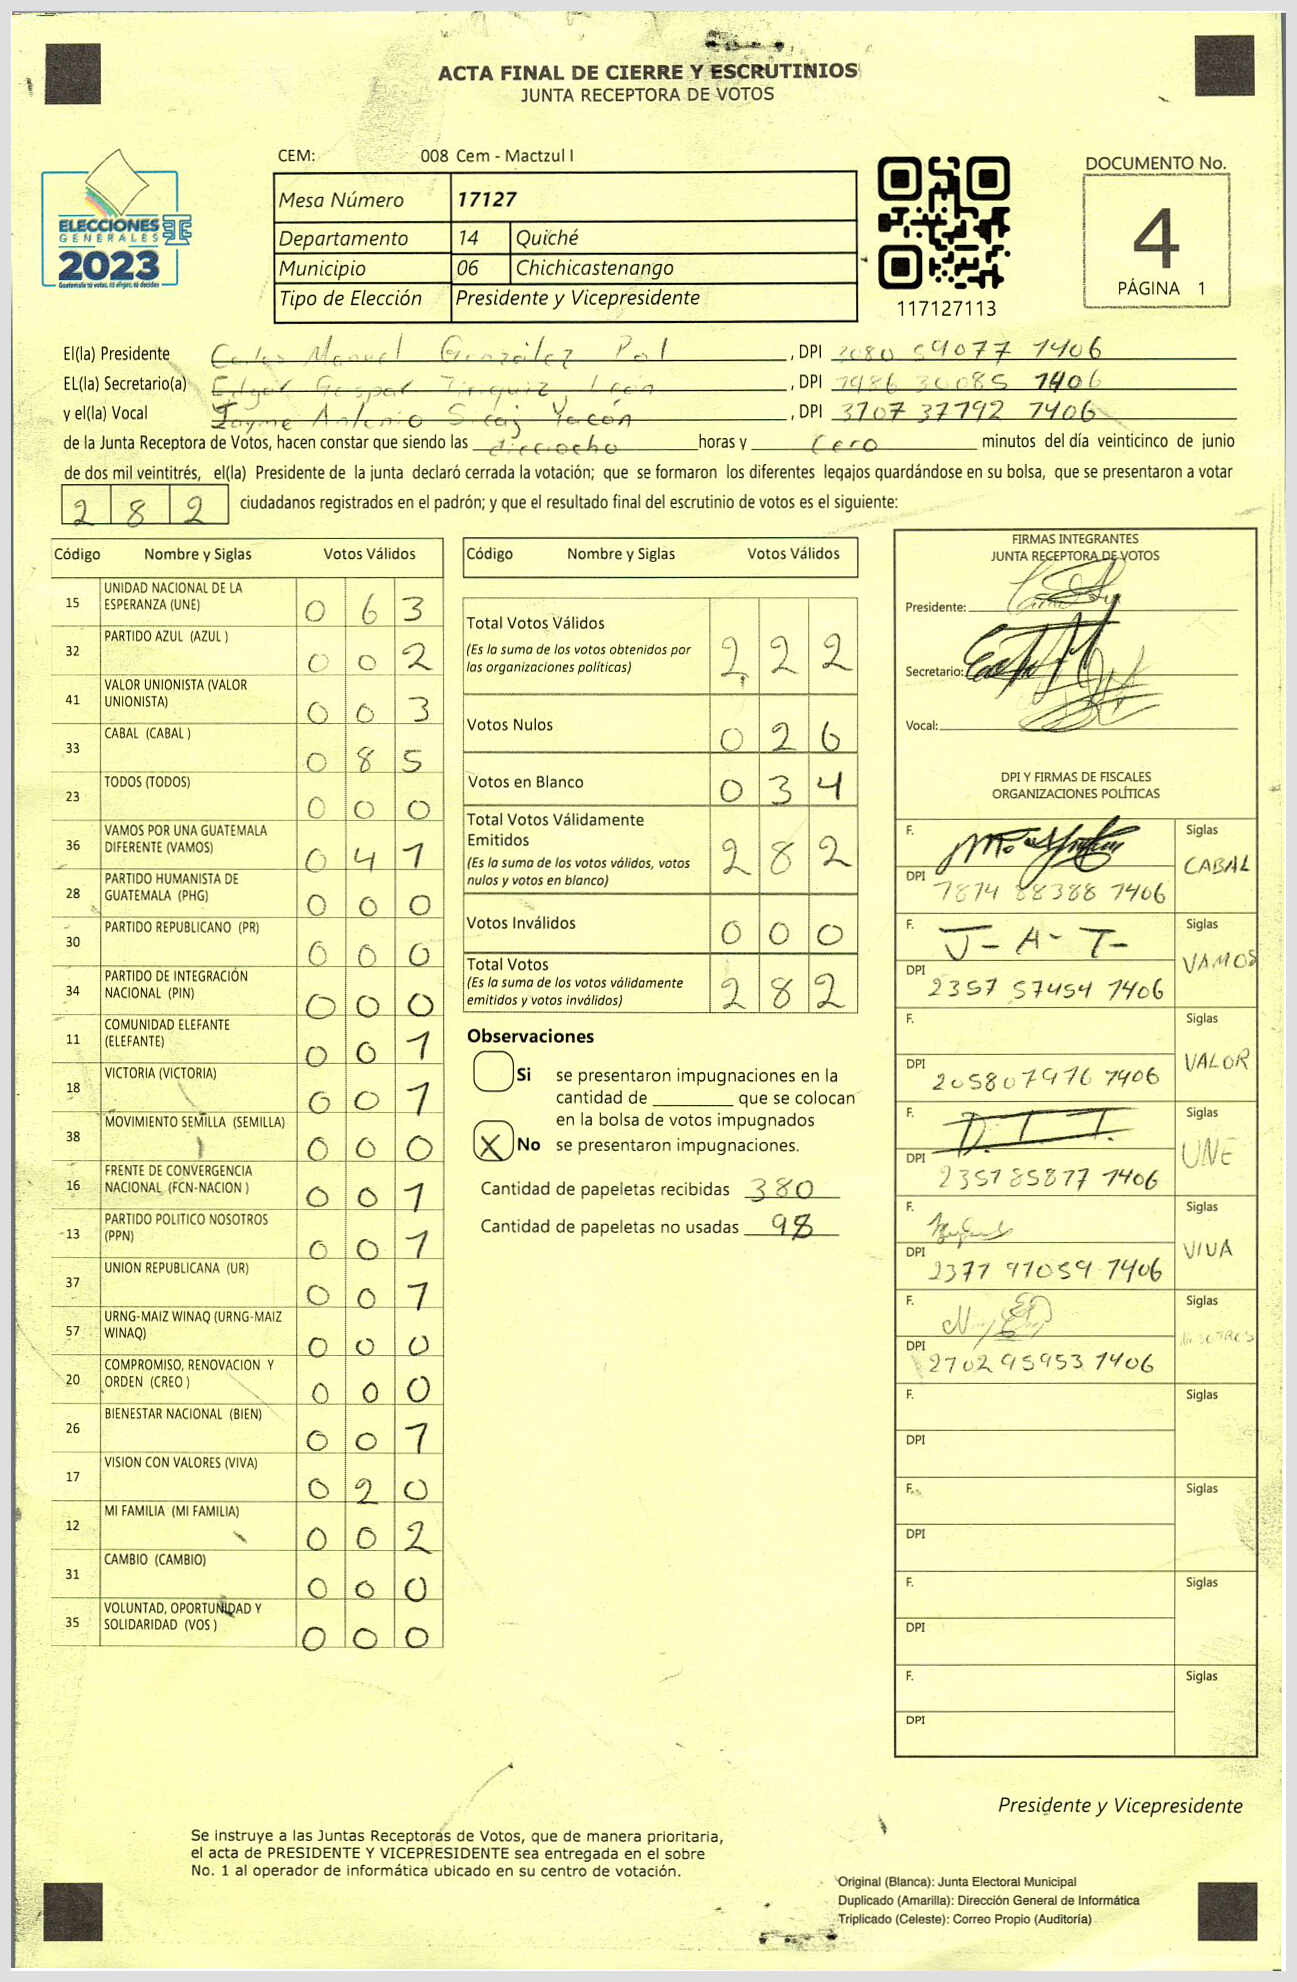 ACTA FINAL DE CIERRE Y ESCRUTINIOS
JUNTA RECEPTORA DE VOTOS
CEM: 008 Cem - Mactzul I
ELECCIONES
GENERALES
2023
Guatemala tú votas, tú eliges, tú decides
Mesa Número 17127
Departamento 14 Quiché
Municipio 06 Chichicastenango
Tipo de Elección Presidente y Vicepresidente
117127113
DOCUMENTO No.
4
PÁGINA 1
El(la) Presidente Carlos Manuel González Pol , DPI 3080 59077 1406
EL(la) Secretario(a) Edgar Gaspar León , DPI 1986 30085 1406
y el(la) Vocal Jayme Antonio Yacón , DPI 3707 37792 1406
de la Junta Receptora de Votos, hacen constar que siendo las dieciocho horas y cero minutos del día veinticinco de junio
de dos mil veintitrés, el(la) Presidente de la junta declaró cerrada la votación; que se formaron los diferentes legajos guardándose en su bolsa, que se presentaron a votar
282 ciudadanos registrados en el padrón; y que el resultado final del escrutinio de votos es el siguiente:
Código Nombre y Siglas Votos Válidos
15 UNIDAD NACIONAL DE LA ESPERANZA (UNE) 063
32 PARTIDO AZUL (AZUL ) 002
41 VALOR UNIONISTA (VALOR UNIONISTA) 003
33 CABAL (CABAL ) 085
23 TODOS (TODOS) 000
36 VAMOS POR UNA GUATEMALA DIFERENTE (VAMOS) 041
28 PARTIDO HUMANISTA DE GUATEMALA (PHG) 000
30 PARTIDO REPUBLICANO (PR) 000
34 PARTIDO DE INTEGRACIÓN NACIONAL (PIN) 000
11 COMUNIDAD ELEFANTE (ELEFANTE) 001
18 VICTORIA (VICTORIA) 001
38 MOVIMIENTO SEMILLA (SEMILLA) 000
16 FRENTE DE CONVERGENCIA NACIONAL (FCN-NACION ) 001
13 PARTIDO POLITICO NOSOTROS (PPN) 001
37 UNION REPUBLICANA (UR) 001
57 URNG-MAIZ WINAQ (URNG-MAIZ WINAQ) 000
20 COMPROMISO, RENOVACION Y ORDEN (CREO ) 000
26 BIENESTAR NACIONAL (BIEN) 001
17 VISION CON VALORES (VIVA) 020
12 MI FAMILIA (MI FAMILIA) 002
31 CAMBIO (CAMBIO) 000
35 VOLUNTAD, OPORTUNIDAD Y SOLIDARIDAD (VOS ) 000
Código Nombre y Siglas Votos Válidos
Total Votos Válidos 222
(Es la suma de los votos obtenidos por
las organizaciones políticas)
Votos Nulos 026
Votos en Blanco 034
Total Votos Válidamente
Emitidos 282
(Es la suma de los votos válidos, votos
nulos y votos en blanco)
Votos Inválidos 000
Total Votos 282
(Es la suma de los votos válidamente
emitidos y votos inválidos)
Observaciones
Si se presentaron impugnaciones en la
cantidad de ________ que se colocan
en la bolsa de votos impugnados
X No se presentaron impugnaciones.
Cantidad de papeletas recibidas 380
Cantidad de papeletas no usadas 98
FIRMAS INTEGRANTES
JUNTA RECEPTORA DE VOTOS
Presidente:
Secretario:
Vocal:
DPI Y FIRMAS DE FISCALES
ORGANIZACIONES POLÍTICAS
F. Siglas CABAL
DPI 1874 88388 1406
F. J-A-T- Siglas VAMOS
DPI 2357 57454 1406
F. Siglas VALOR
DPI 205807976 1406
F. D.I.T. Siglas UNE
DPI 235785877 1406
F. Siglas VIVA
DPI 2371 97059 1406
F. Siglas
DPI 2702 95953 1406
F. Siglas
DPI
F. Siglas
DPI
F. Siglas
DPI
F. Siglas
DPI
Presidente y Vicepresidente
Se instruye a las Juntas Receptoras de Votos, que de manera prioritaria,
el acta de PRESIDENTE Y VICEPRESIDENTE sea entregada en el sobre
No. 1 al operador de informática ubicado en su centro de votación.
Original (Blanca): Junta Electoral Municipal
Duplicado (Amarilla): Dirección General de Informática
Triplicado (Celeste): Correo Propio (Auditoría)